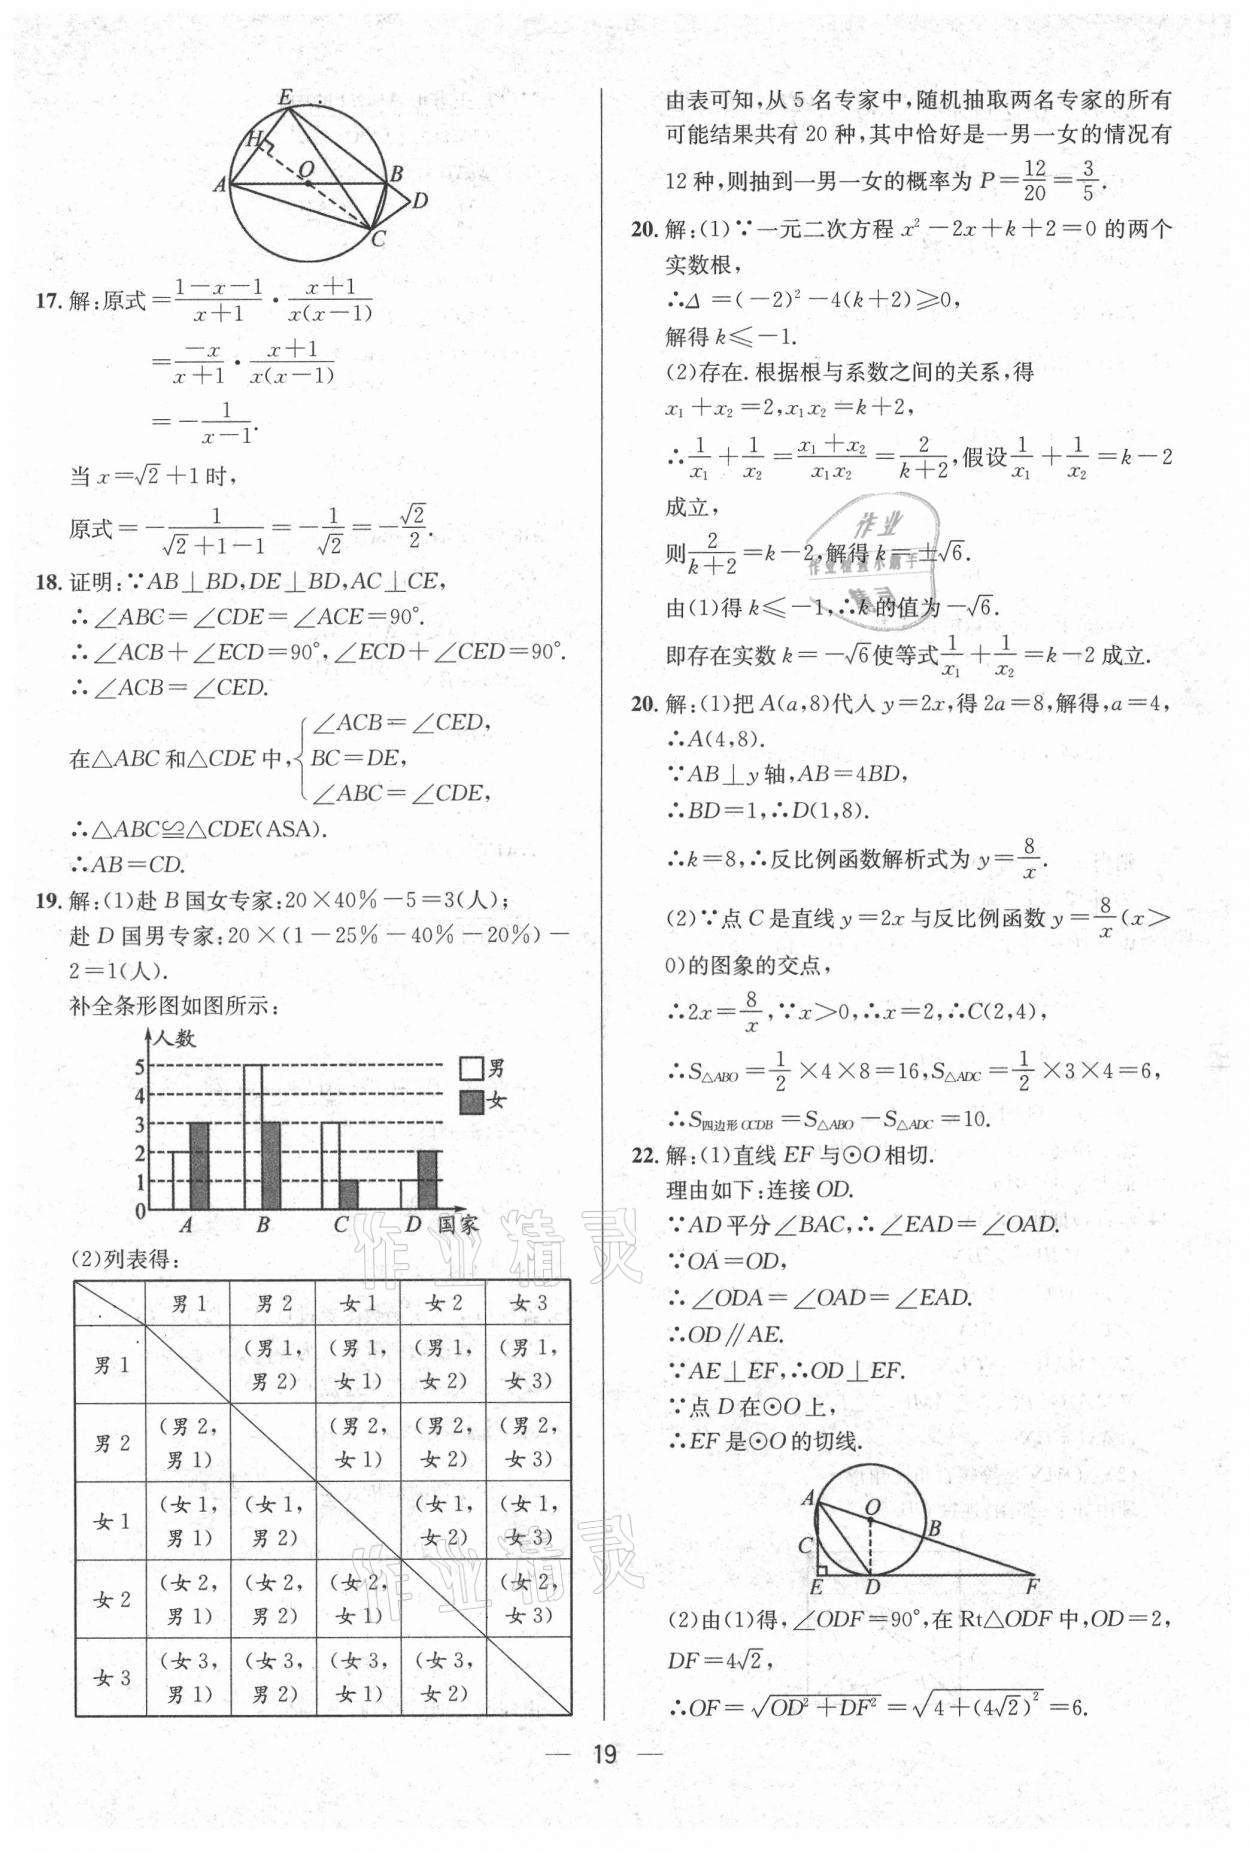 E
H
A
O
B
D
C
17. 解:原式=\frac{1-x-1}{x+1}·\frac{x+1}{x(x-1)}
=\frac{-x}{x+1}·\frac{x+1}{x(x-1)}
=-\frac{1}{x-1}.
当 x=√2+1时,
原式=-\frac{1}{√2+1-1}=-\frac{1}{√2}=-\frac{√2}{2}.
18. 证明:∵AB⊥BD,DE⊥BD,AC⊥CE,
∴∠ABC=∠CDE=∠ACE=90°.
∴∠ACB+∠ECD=90°,∠ECD+∠CED=90°.
∴∠ACB=∠CED.
∠ACB=∠CED,
在△ABC和△CDE中,{BC=DE,
∠ABC=∠CDE,
∴△ABC≌△CDE(ASA).
∴AB=CD.
19. 解:(1)赴 B 国女专家:20×40%-5=3(人);
赴 D 国男专家:20×(1-25%-40%-20%)-
2=1(人).
补全条形图如图所示:
人数
5
4
3
2
1
0
男
女
A B C D 国家
(2)列表得:
男1 男2 女1 女2 女3
男1 (男1,男2) (男1,女1) (男1,女2) (男1,女3)
男2 (男2,男1) (男2,女1) (男2,女2) (男2,女3)
女1 (女1,男1) (女1,男2) (女1,女2) (女1,女3)
女2 (女2,男1) (女2,男2) (女2,女1) (女2,女3)
女3 (女3,男1) (女3,男2) (女3,女1) (女3,女2)
由表可知,从5名专家中,随机抽取两名专家的所有
可能结果共有20种,其中恰好是一男一女的情况有
12种,则抽到一男一女的概率为 P=\frac{12}{20}=\frac{3}{5}.
20. 解:(1)∵一元二次方程 x²-2x+k+2=0 的两个
实数根,
∴Δ=(-2)²-4(k+2)≥0,
解得 k≤-1.
(2)存在. 根据根与系数之间的关系,得
x₁+x₂=2,x₁x₂=k+2,
∴\frac{1}{x₁}+\frac{1}{x₂}=\frac{x₁+x₂}{x₁x₂}=\frac{2}{k+2},假设\frac{1}{x₁}+\frac{1}{x₂}=k-2
成立,
则\frac{2}{k+2}=k-2,解得 k=±√6.
由(1)得 k≤-1,∴k的值为-√6.
即存在实数 k=-√6使等式\frac{1}{x₁}+\frac{1}{x₂}=k-2成立.
20. 解:(1)把A(a,8)代入 y=2x,得 2a=8,解得,a=4,
∴A(4,8).
∵AB⊥y轴,AB=4BD,
∴BD=1,∴D(1,8).
∴k=8,∴反比例函数解析式为 y=\frac{8}{x}.
(2)∵点C是直线 y=2x与反比例函数 y=\frac{8}{x}(x>
0)的图象的交点,
∴2x=\frac{8}{x},∵x>0,∴x=2,∴C(2,4),
∴S△ABO=\frac{1}{2}×4×8=16,S△ADC=\frac{1}{2}×3×4=6,
∴S四边形OCDB=S△ABO-S△ADC=10.
22. 解:(1)直线 EF 与⊙O相切.
理由如下:连接 OD.
∵AD平分∠BAC,∴∠EAD=∠OAD.
∵OA=OD,
∴∠ODA=∠OAD=∠EAD.
∴OD∥AE.
∵AE⊥EF,∴OD⊥EF.
∵点D在⊙O上,
∴EF是⊙O的切线.
A
O
B
C
E D F
(2)由(1)得,∠ODF=90°,在 Rt△ODF 中,OD=2,
DF=4√2,
∴OF=√(OD²+DF²)=√(4+(4√2)²)=6.
— 19 —
作业精灵
作业精灵
作业
作业检查小助手